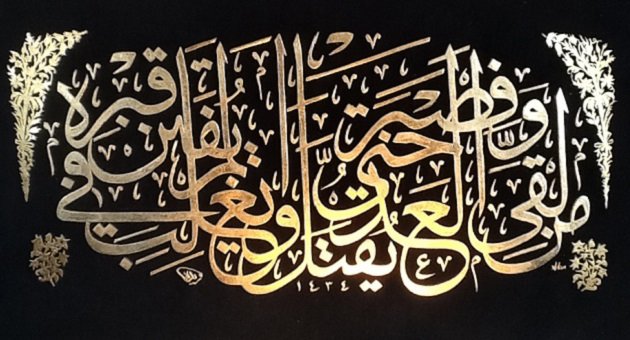 من لقي العدو فصبر حتى يقتل او يغلب لم يفتن في قبره
١٤٣٤